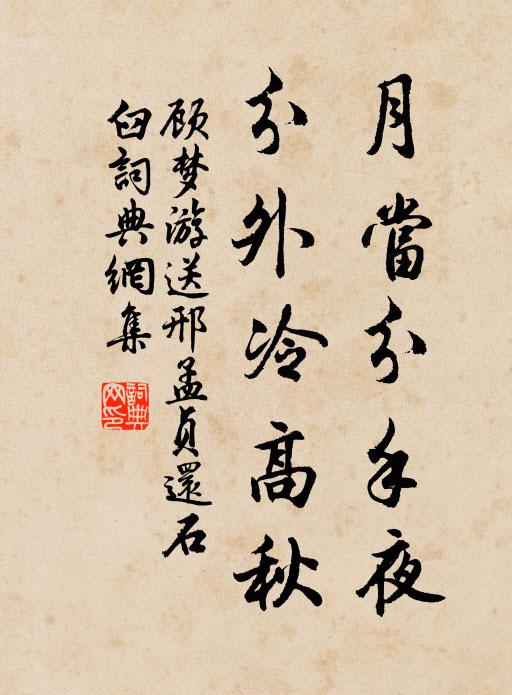 月當分手夜
分外冷高秋
顾梦游送邢孟貞還石
臼詞典網集
詞典
网印